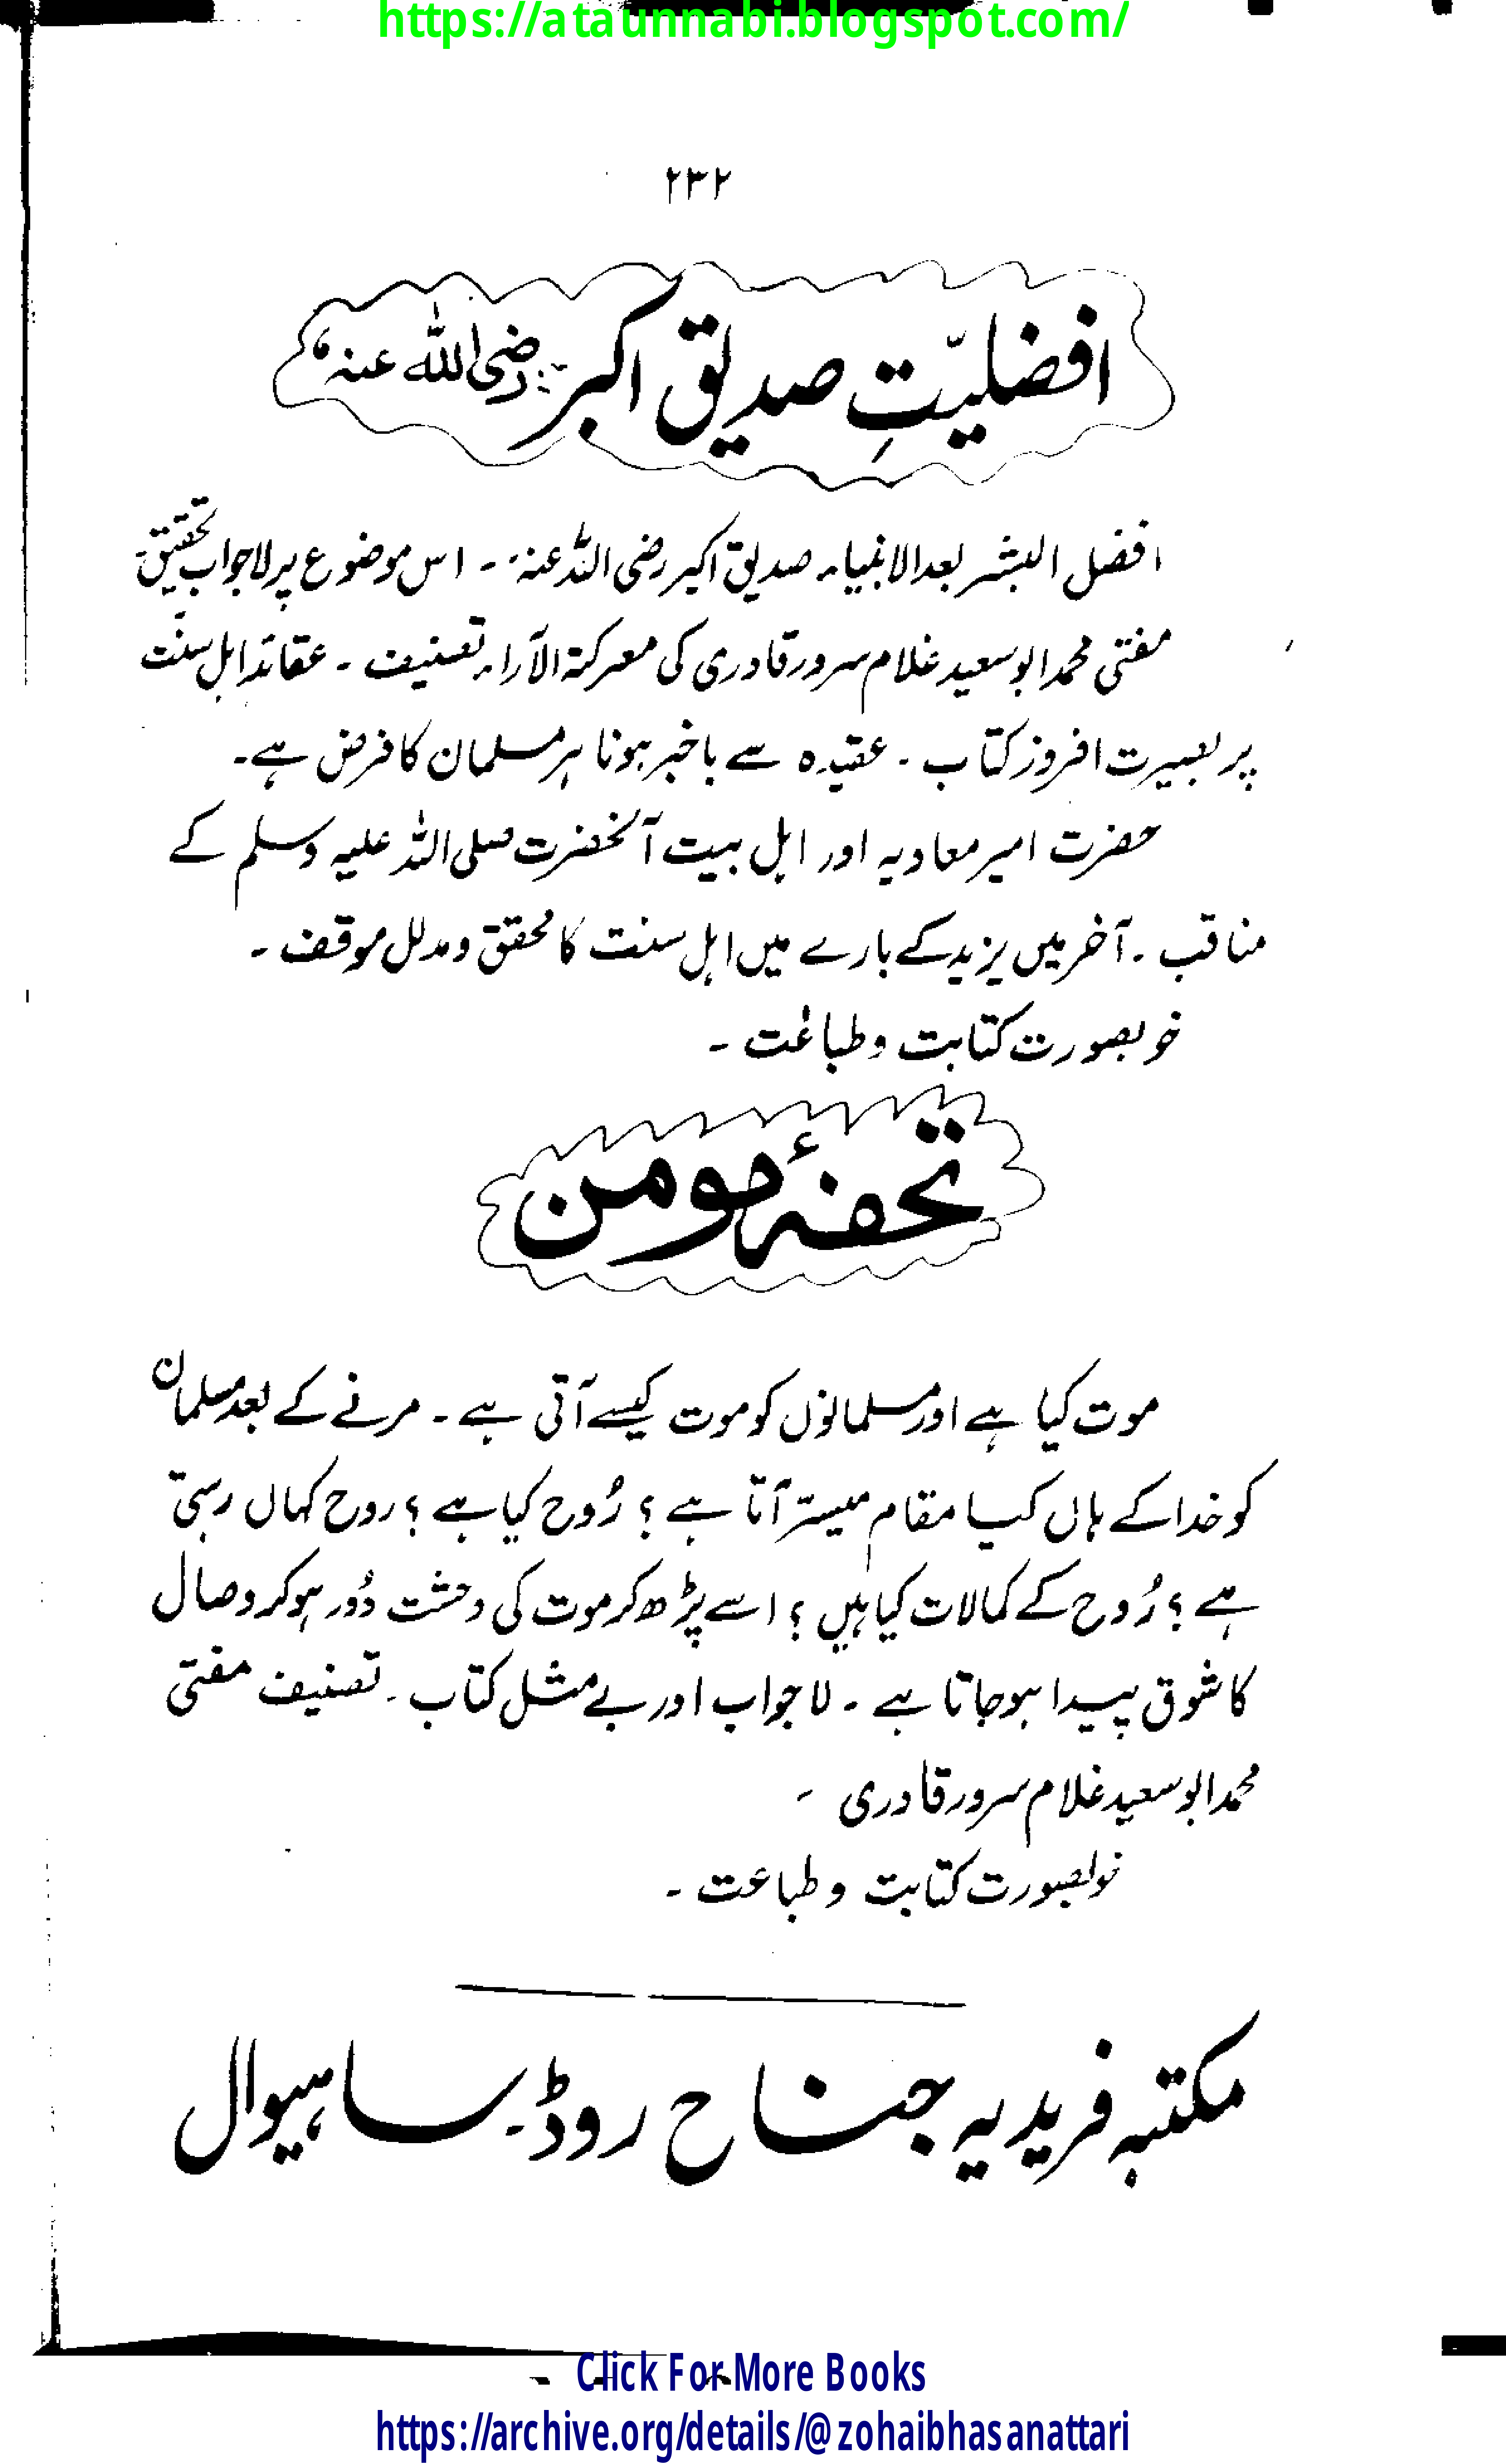 https://ataunnabi.blogspot.com/
۲۳۲
افضلیّتِ صدیق اکبر رضی اللہ عنہ
افضل البشر بعد الانبیاء صدیق اکبر رضی اللہ عنہ ۔ اس موضوع پر لاجواب تحقیق۔
مفتی محمد ابو سعید غلام سرور قادری کی معرکۃ الآراء تصنیف ۔ عقائد اہل سنّت
پر بصیرت افروز کتاب ۔ عقیدہ سے باخبر ہونا ہر مسلمان کا فرض ہے۔
حضرت امیر معاویہ اور اہل بیت آنحضرت صلی اللہ علیہ وسلم کے
مناقب ۔ آخر میں یزید کے بارے میں اہل سنت کا محقق و مدلل موقف ۔
خوبصورت کتابت و طباعت ۔
تحفۂ مومن
موت کیا ہے اور مسلمانوں کو موت کیسے آتی ہے ۔ مرنے کے بعد مسلمان
کو خدا کے ہاں کیا مقام میسّر آتا ہے ؟ رُوح کیا ہے ؟ روح کہاں رہتی
ہے ؟ رُوح کے کمالات کیا ہیں ؟ اسے پڑھ کر موت کی وحشت دُور ہو کر وصال
کا شوق پیدا ہو جاتا ہے ۔ لاجواب اور بے مثل کتاب ۔ تصنیف مفتی
محمد ابو سعید غلام سرور قادری ۔
خوبصورت کتابت و طباعت ۔
مکتبہ فریدیہ جناح روڈ۔ ساہیوال
Click For More Books
https://archive.org/details/@zohaibhasanattari